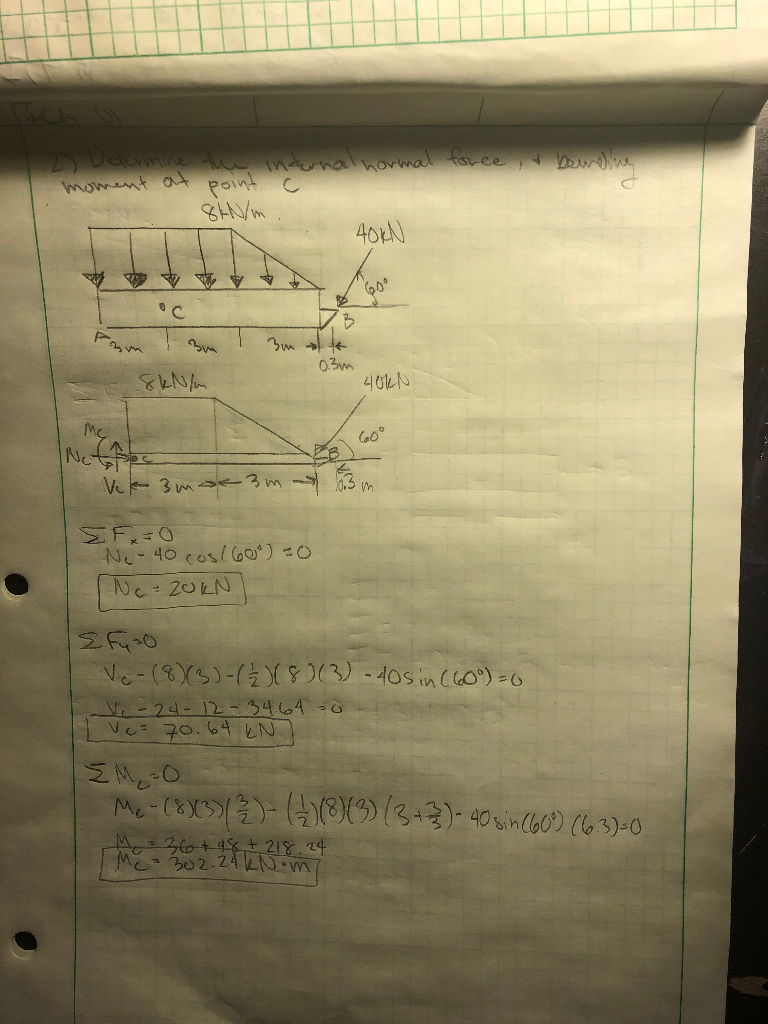 2) Determine the internal normal force, + bending
moment at point C
8kN/m
40kN
60°
°C
B
A
3m 3m 3m
0.3m
8kN/m
40kN
Mc
60°
Nc
C
B
Vc
3m
3m
0.3 m
ΣFx=0
Nc - 40 cos(60°) = 0
Nc = 20kN
ΣFy=0
Vc-(8)(3)-(1/2)(8)(3) - 40sin(60°)=0
Vc - 24 - 12 - 34.64 = 0
Vc = 70.64 kN
ΣMc=0
Mc-(8)(3)(3/2)-(1/2)(8)(3)(3+3/3)-40sin(60°)(6.3)=0
Mc = 36 + 48 + 218.24
Mc = 302.24 kN·m